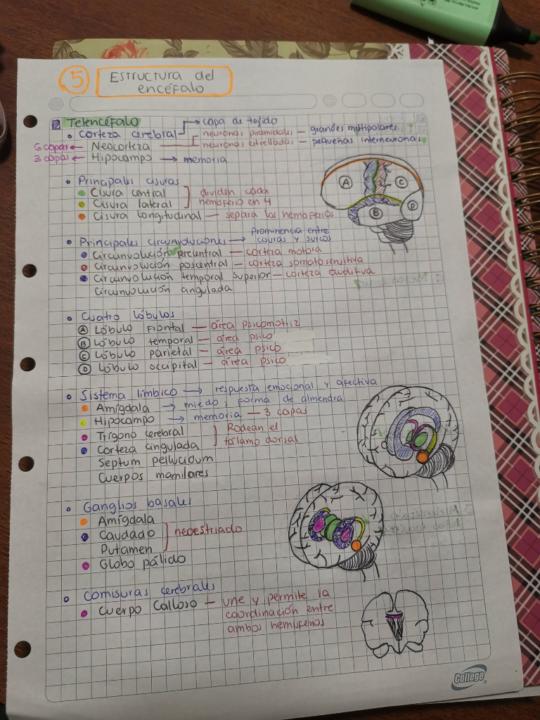 5 Estructura del
encéfalo
Telencéfalo
capa de tejido
• Corteza cerebral
neuronas piramidales - grandes multipolares
6 capas ← Neocorteza
neuronas estrelladas - pequeñas interneuronas
3 capas ← Hipocampo → memoria
• Principales cisuras
Cisura central
Cisura lateral
dividen cada
hemisferio en 4
Cisura longitudinal - separa los hemisferios
• Principales circunvoluciones → Prominencia entre
cisuras y surcos
Circunvolución precentral - corteza motora
Circunvolución poscentral - corteza somatosensitiva
Circunvolución temporal superior - corteza auditiva
Circunvolución angulada
A C
B D
• Cuatro lóbulos
A Lóbulo frontal - área psicomotriz
B Lóbulo temporal - área psico
C Lóbulo parietal - área psico
D Lóbulo occipital - área psico
• Sistema límbico → respuesta emocional y afectiva
Amígdala → miedo; forma de almendra
Hipocampo → memoria - 3 capas
Trígono cerebral
Corteza angulada
Rodean el
tálamo dorsal
Septum pellucidum
Cuerpos mamilares
• Ganglios basales
Amígdala
Caudado
Putamen
neoestriado
Globo pálido
• Comisuras cerebrales
Cuerpo Calloso - une y permite la
coordinación entre
ambos hemisferios
College